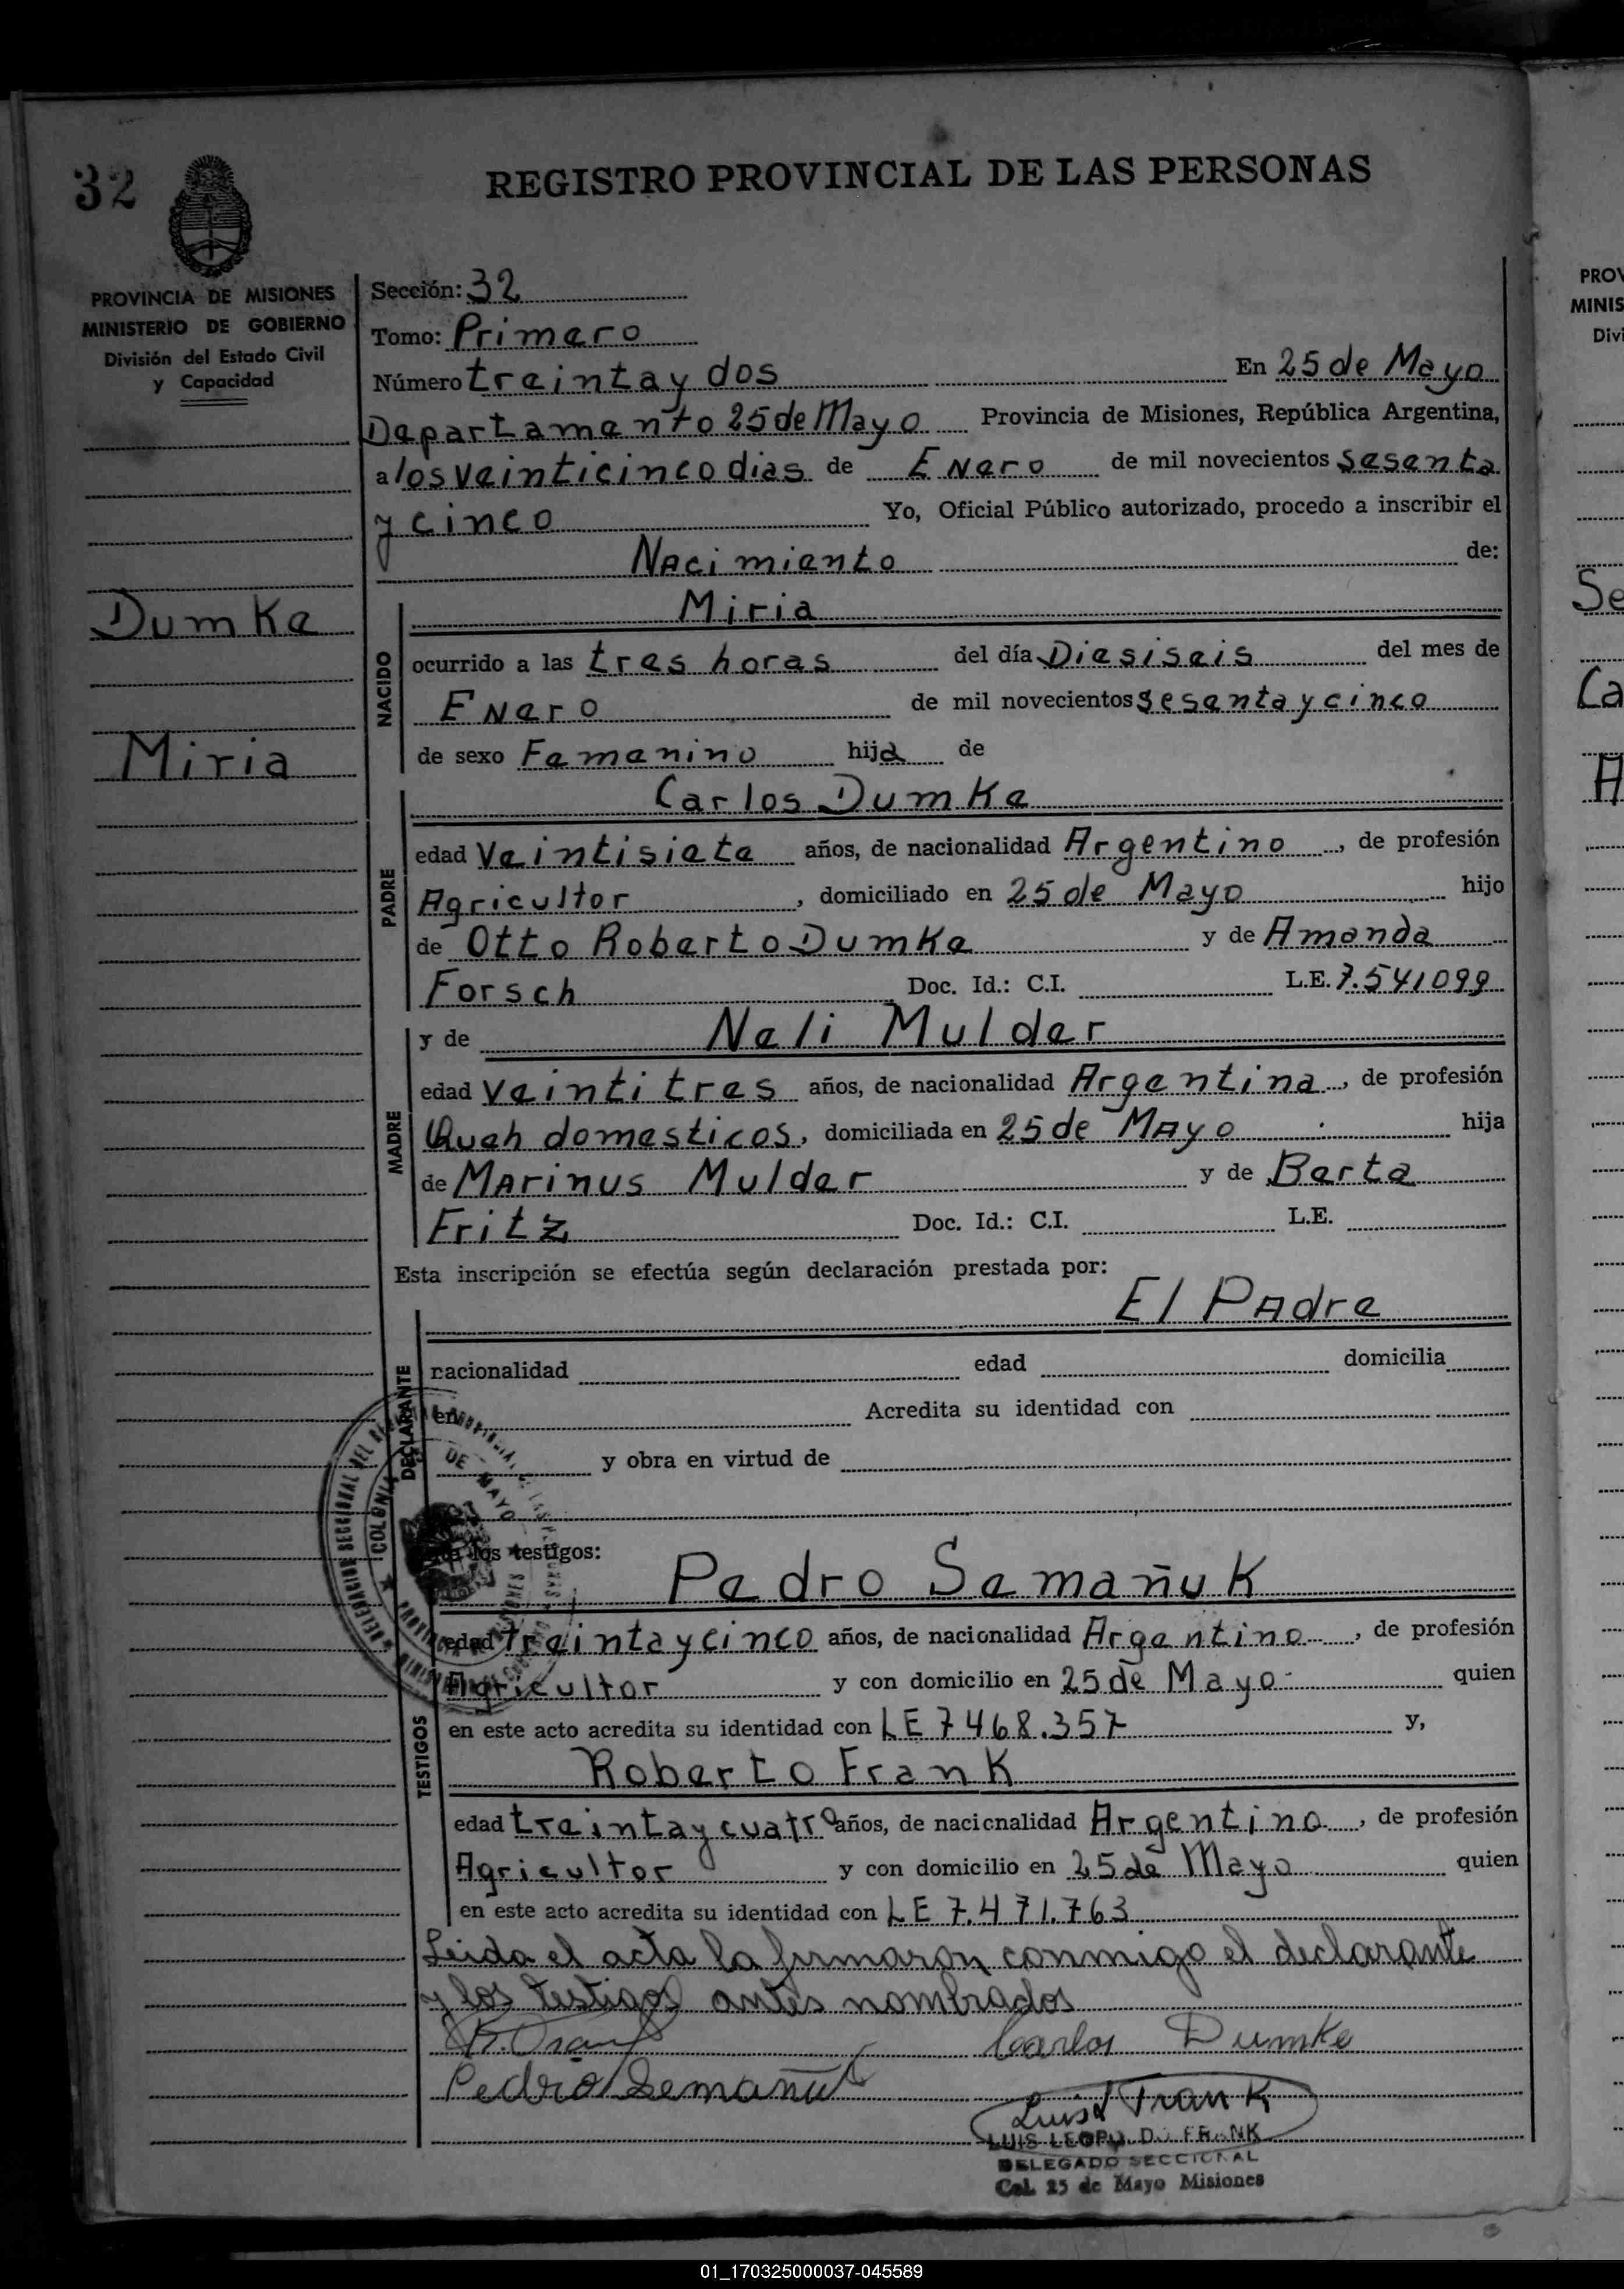 32
REGISTRO PROVINCIAL DE LAS PERSONAS
PROVINCIA DE MISIONES
MINISTERIO DE GOBIERNO
División del Estado Civil
y Capacidad
Dumke
Miria
Sección: 32
Tomo: Primero
Número treinta y dos En 25 de Mayo
Departamento 25 de Mayo Provincia de Misiones, República Argentina,
a los veinticinco dias de Enero de mil novecientos sesenta
y cinco Yo, Oficial Público autorizado, procedo a inscribir el
Nacimiento de:
NACIDO
Miria
ocurrido a las tres horas del día Diesiseis del mes de
Enero de mil novecientos sesenta y cinco
de sexo Femenino hija de
PADRE
Carlos Dumke
edad Veintisiete años, de nacionalidad Argentino, de profesión
Agricultor, domiciliado en 25 de Mayo hijo
de Otto Roberto Dumke y de Amanda
Forsch Doc. Id.: C.I. L.E. 7.541099
MADRE
y de Neli Mulder
edad veintitres años, de nacionalidad Argentina, de profesión
Queh domesticos, domiciliada en 25 de Mayo hija
de Marinus Mulder y de Berta
Fritz Doc. Id.: C.I. L.E.
Esta inscripción se efectúa según declaración prestada por:
El Padre
DECLARANTE
nacionalidad edad domicilia
en Acredita su identidad con
y obra en virtud de
los testigos:
TESTIGOS
Pedro Semañuk
edad treinta y cinco años, de nacionalidad Argentino, de profesión
Agricultor y con domicilio en 25 de Mayo quien
en este acto acredita su identidad con LE 7468.357 y,
Roberto Frank
edad treinta y cuatro años, de nacionalidad Argentino, de profesión
Agricultor y con domicilio en 25 de Mayo quien
en este acto acredita su identidad con LE 7.471.763
Leida el acta la firmaron conmigo el declarante
y los testigos antes nombrados
Carlos Dumke
Pedro Semañuk
Luis Frank
LUIS LEOPOLDO FRANK
DELEGADO SECCIONAL
Col. 25 de Mayo Misiones
COLONIA
DE MAYO
PROV
MINIS
Divi
Se
Ca
A
01_170325000037-045589